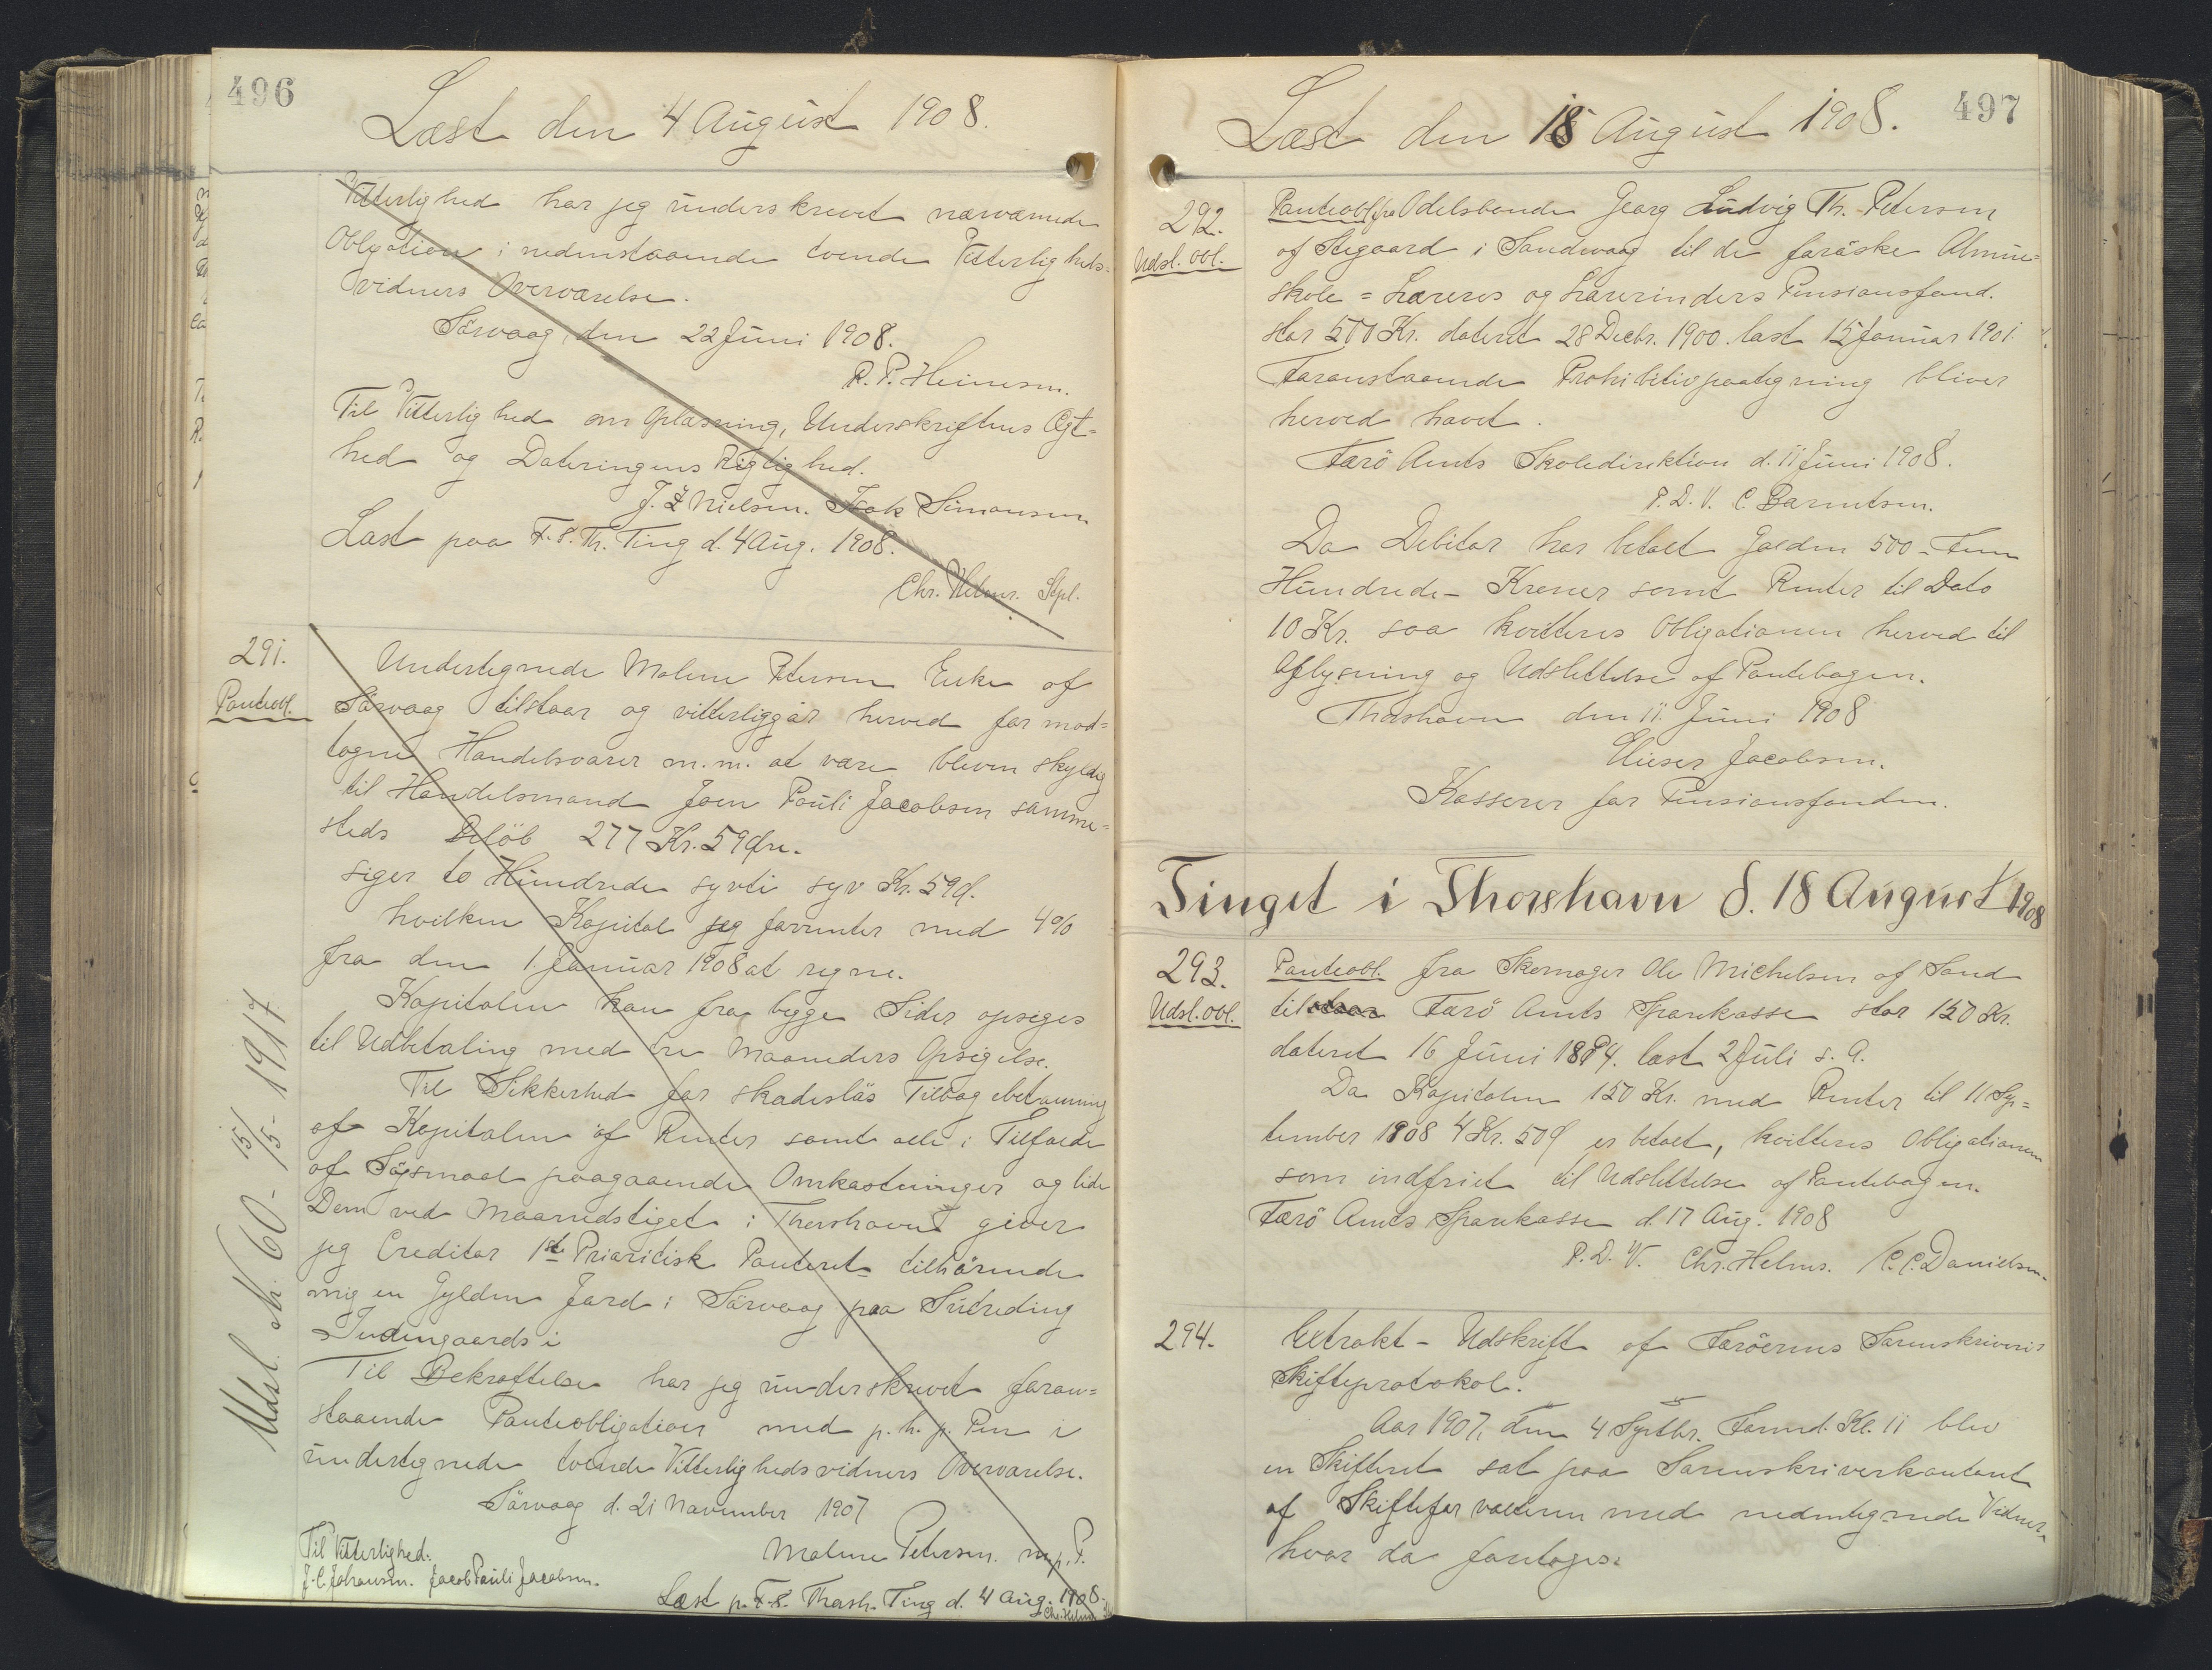 496
Læst den 4 August 1908.
Vitterlighed har jeg underskrevet nærværende
Obligation i nedenstaaende tvende Vitterligheds=
vidners Overværelse.
Sörvaag den 22 Juni 1908.
R. P. Heinesen.
Til Vitterlighed om Oplæsning, Underskriftens Ægt=
hed og Dateringens Rigtighed.
J. J. Nielsen. Isak Simonsen
Læst paa F. S. Th. Ting d. 4 Aug. 1908.
Chr. Helms. Stpl.
291.
Panteobl.
Undertegnede Malene Petersen Enke af
Sörvaag tilstaar og vitterliggör herved for mod=
tagne Handelsvarer m.m. at være bleven skyldig
til Handelsmand Joen Pauli Jacobsen samme=
steds Belöb 277 Kr. 59 Öre.
siger to Hundrede syvti syv Kr. 59 Ø.
hvilken Kapital jeg forrenter med 4%
fra den 1. Januar 1908 at regne.
Kapitalen kan fra begge Sider opsiges
til Udbetaling med tre Maaneders Opsigelse.
Til Sikkerhed for skadeslös Tilbagebetalning
af Kapitalen af Renter samt alle i Tilfælde
af Sögsmaal paagaaende Omkostninger og lide
Dom ved Maanedstinget i Thorshavn giver
jeg Creditor 1ste Prioritisk Panteret tilhörende
mig en Gylden Jord i Sörvaag paa Sutreding
Indengaards i
Til Bekræftelse har jeg underskrevet foran=
staaende Panteobligation med p. h. p. Pen i
undertegnede tvende Vitterlighedsvidners Overværelse.
Sörvaag d. 21 November 1907
Malene Petersen. m. p. P.
Til Vitterlighed.
J. C. Johansen. Jacob Pauli Jacobsen.
Læst p. F. S. Thorsh. Ting d. 4 Aug. 1908.
Chr. Helms
Udsl. Nr. 60 - 15/5 - 1917
497
Læst den 18 August 1908.
292.
Udsl. obl.
Panteobl. fra Odelsbonde Georg Ludvig Th. Petersen
af Stegaard i Sandevaag til de færöske Almue=
skole = Læreres og Lærerinders Pensionsfond.
stor 500 Kr. dateret 28 Decbr. 1900. læst 15 Januar 1901.
Foranstaaende Prohibitivpaategning bliver
herved hævet.
Færö Amts Skoledirektion d. 11 Juni 1908.
P. D. V. C. Bærentsen.
Da Debitor har betalt Gælden 500 - Fem
Hundrede - Kroner samt Renter til Dato
10 Kr. saa kvitteres Obligationen herved til
Aflysning og Udslettelse af Pantebogen.
Thorshavn den 11. Juni 1908
Elieser Jacobsen.
Kasserer for Pensionsfonden.
Tinget i Thorshavn d. 18 August 1908
293.
Udsl. obl.
Panteobl. fra Skomager Ole Michelsen af Sand
til Færö Amts Sparekasse stor 150 Kr.
dateret 16 Juni 1894. læst 2 Juli s. A.
Da Kapitalen 150 Kr. med Renter til 11 Sep=
tember 1908 4 Kr. 50 Ø er betalt, kvitteres Obligationen
som indfriet til Udslettelse af Pantebogen.
Færö Amts Sparekasse d. 17 Aug. 1908
P. D. V. Chr. Helms. C. C. Danielsen.
294.
Extrakt - Udskrift af Færöernes Sorenskriveris
Skifteprotokol.
Aar 1907, den 4 Septbr. Formd. Kl. 11 blev
en Skifteret sat paa Sorenskriverkontoret
af Skifteforvalteren med nedentegnede Vidner
hvor da foretoges: